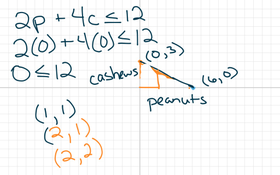 2p + 4c ≤ 12
2(0) + 4(0) ≤ 12
0 ≤ 12
(0, 3)
cashews
(6, 0)
peanuts
(1, 1)
(2, 1)
(2, 2)